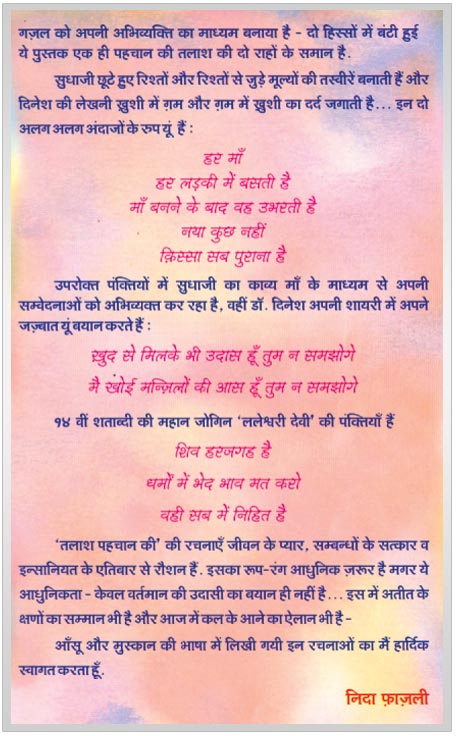 गज़ल को अपनी अभिव्यक्ति का माध्यम बनाया है - दो हिस्सों में बंटी हुई
ये पुस्तक एक ही पहचान की तलाश की दो राहों के समान है.
सुधाजी छूटे हुए रिश्तों और रिश्तों से जुड़े मूल्यों की तस्वीरें बनाती हैं और
दिनेश की लेखनी ख़ुशी में ग़म और ग़म में ख़ुशी का दर्द जगाती है... इन दो
अलग अलग अंदाजों के रुप यूं हैं :
हर माँ
हर लड़की में बसती है
माँ बनने के बाद वह उभरती है
नया कुछ नहीं
क़िस्सा सब पुराना है
उपरोक्त पंक्तियों में सुधाजी का काव्य माँ के माध्यम से अपनी
सम्वेदनाओं को अभिव्यक्त कर रहा है, वहीं डॉ. दिनेश अपनी शायरी में अपने
जज़्बात यूं बयान करते हैं :
ख़ुद से मिलके भी उदास हूँ तुम न समझोगे
मै खोई मन्ज़िलों की आस हूँ तुम न समझोगे
१४ वीं शताब्दी की महान जोगिन 'ललेश्वरी देवी' की पंक्तियाँ हैं
शिव हरजगह है
धर्मों में भेद भाव मत करो
वही सब में निहित है
'तलाश पहचान की' की रचनाएँ जीवन के प्यार, सम्बन्धों के सत्कार व
इन्सानियत के एतिबार से रौशन हैं. इसका रूप-रंग आधुनिक ज़रूर है मगर ये
आधुनिकता - केवल वर्तमान की उदासी का बयान ही नहीं है... इस में अतीत के
क्षणों का सम्मान भी है और आज में कल के आने का ऐलान भी है -
आँसू और मुस्कान की भाषा में लिखी गयी इन रचनाओं का मैं हार्दिक
स्वागत करता हूँ.
निदा फ़ाज़ली